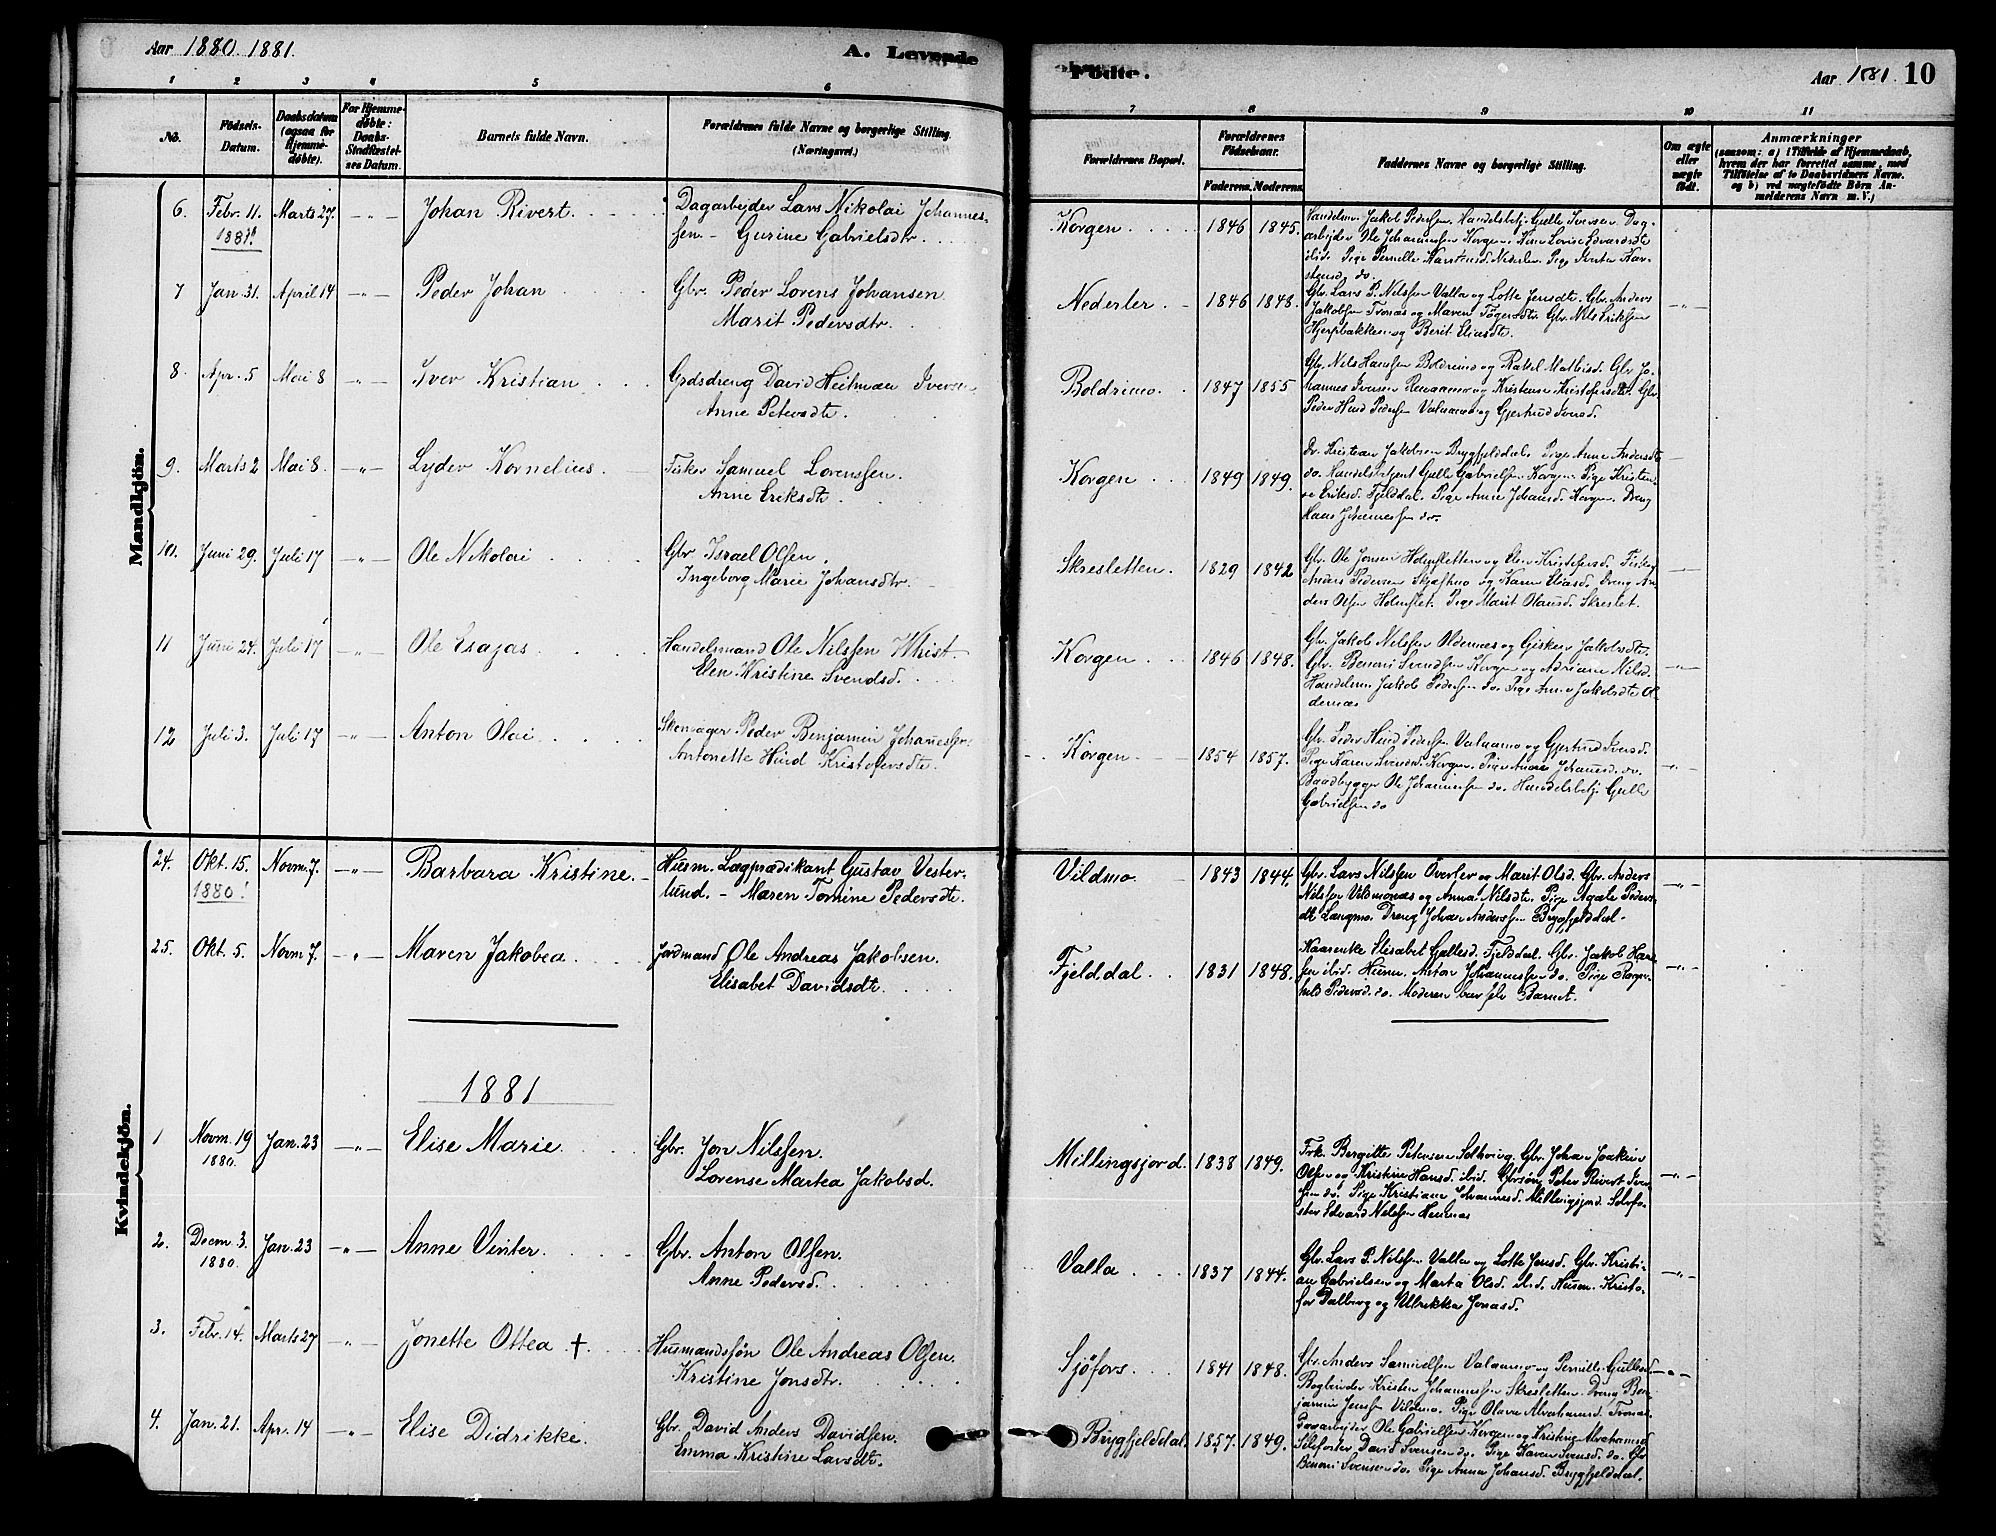 Aar 1880. 1881.
A. Levende
Födte.
Aar 1881. 10
1 2 3 4 5 6
7 8 9 10 11
No.
Födsels-Datum.
Daabsdatum (ogsaa for Hjemme-døbte).
For Hjemme-døbte: Daabs-Stadfæstel-ses Datum.
Barnets fulde Navn.
Forældrenes fulde Navne og borgerlige Stilling. (Næringsvei.)
Forældrenes Bopæl.
Forældrenes Födselsaar.
Faderens. Moderens.
Faddernes Navne og borgerlige Stilling.
Om ægte eller uægte født.
Anmærkninger
(saasom: a) i Tilfælde af Hjemmedaab, hvem der har forrettet samme, med Tilføielse af to Daabsvidners Navne. og b) ved uægtefödte Börn An-melderens Navn m. V.;)
Mandkjön.
6. Febr. 11. 1881! Marts 27. -"- Johan Rivert. Dagarbejder Lars Nikolai Johannes-
sen - Gurine Gabrielsdtr.
Korgen 1846 1845. Handelsm. Jakob Pedersen. Handelsbetj. Gulle Iversen Dag-
arbejder Ole Johannessen Korgen.
ibid. Pige Pernelle Karstensd. Nederler. Pige Kar-
stensd. do.
7 Jan. 31. April 14 -"- Peder Johan Gbr. Peder Lorens Johansen
Marit Pedersdtr.
Nederler 1846 1848. Gbr. Lars P. Nilssen Valla og Lotte Jensdt. Gbr. Anders
Jakobsen Tronaas og Maren. Gbr. Nils Eriksen
Hjerpbakken og Berit Eliasdt.
8. Apr. 5 Mai 8 -"- Iver Kristian Grdsdreng David Heitman Iversen
Anne Petersdt.
Boldrimo. 1847 1855 Gbr. Nils Hansen Boldrimo og Rakel Mathisd. Gbr. Jo-
hannes Iversen og Kristense Kristofersdt. Gbr.
Peder Hind Pedersen Valaamo og Gjertrud Iversd.
9. Marts 2 Mai 8. -"- Lyder Kornelius. Fisker Samuel Lorensen.
Anne Eriksdt.
Korgen 1849 1849. Kristian Jakobsen Brygfjelddal. Pige Anne Andersdt
do. Handelsbetjent Gulle Gabrielsen Korgen. Pige Kristen-
se Eriksd. Fjelddal. Pige Anne Johansd. Korgen. Dreng
Hans Johannessen do.
10. Juni 29. Juli 17 -"- Ole Nikolai Gbr. Israel Olsen.
Ingeborg Marie Johansdtr.
Skresletten. 1829 1842 Gbr. Ole Jonsen Holmsletten og Elen Kristofersd.
Anders Pedersen og Karen Eliasd. Dreng An-
ders Olsen Holmslet. Pige Marit Olausd. Skreslet.
11 Juni 24. Juli 17 -"- Ole Esajas. Handelsmand Ole Nilssen Whist.
Elen Kristine Svendsd.
Korgen 1846 1848. Gbr. Jakob Nilssen Oldernæs og Gisken Jakobsdt.
Gbr. Benoni Svendsen Korgen og Adriane Nilsd.
Handelsm. Jakob Pedersen do. Pige Anne Jakobsdt Ol-
dernæs
12 Juli 3. Juli 17 -"- Anton Olai Peder Benjamin Johannessen
Antonette Hind Kristofersdt.
Korgen 1854 1857. Gbr. Peder Hind Pedersen Valaamo og Gjertrud Iversd.
Pige Karen Svensd. Korgen. Pige Anne Johansd. do.
Baadbygger Ole Johannessen do. Handelsbetj. Gulle
Gabrielsen do
Kvindekjön.
24. Okt. 15. 1880! Novm. 7. -"- Barbara Kristine. Husm. Lægprædikant Gustav Vester-
lund. - Maren Tomine Pedersdt.
Vildmo 1843 1844. Gbr. Lars Nilssen Överler og Marit Olsd. Gbr. Anders
Nilssen Vildmonæs og Anna Nilsdt. Pige Agate Peders-
dt Langmo. Dreng Johan Andersen Brygfjelddal.
25. Okt. 5. Novm 7. -"- Maren Jakobea Jordmand Ole Andreas Jakobsen.
Elisabet Davidsdt.
Fjelddal. 1831 1848. Elisabet Gullesd. Fjelddal. Gbr. Jakob Han-
sen ibid. Husm. Anton Johannessen do. Pige Ragn-
hild Pedersd. do. Moderen bar selv Barnet.
1881
1 Novm. 19 1880. Jan. 23 -"- Elise Marie Gbr. Jon Nilssen.
Lorense Martea Jakobsd.
Millingsjord. 1838 1849. Frk. Bergitte Petersen Solhoug. Gbr. Johan Joakim
Olsen og Kristine Hansd. ibid. Peter Rivert Iver-
sen do. Pige Kristiane Johannesd. Millingsjord. Selvfo-
ster Edvard Nilssen
2. Decm. 3. 1880. Jan. 23 -"- Anne Vinter. Gbr. Anton Olsen.
Anne Pedersd.
Valla 1837 1844. Gbr. Lars P. Nilssen Valla og Lotte Jensd. Gbr. Kristi-
an Gabrielsen og Marta Olsd. ibid. Husm. Kristo-
fer Dalberg og Ulrikka Jonasd.
3. Febr. 14. Marts 27 -"- Jonette Ottea † Husmandssøn Ole Andreas Olsen.
Kristine Jonsdtr.
Sjöfors 1841 1848. Gbr. Anders Samuelsen Valaamo og Pernille Gullesd
Bogbinder Kristen Johannessen Skresletten. Dreng Ben-
jamin Jenssen Vildmo. Pige Olava Abrahamsd. Tronaas
4. Jan. 21. Apr. 14 -"- Elise Didrikke. Gbr. David Anders Davidsen.
Emma Kristine Larsdt.
Brygfjelddal. 1857. 1849. Dagarbejder Ole Gabrielsen Korgen og Kristine Abrahamsd
David Svensen do. Pige Karen Svensd. do. Gbr
Benoni Svensen do. Pige Anna Johansd. Brygfjelddal.